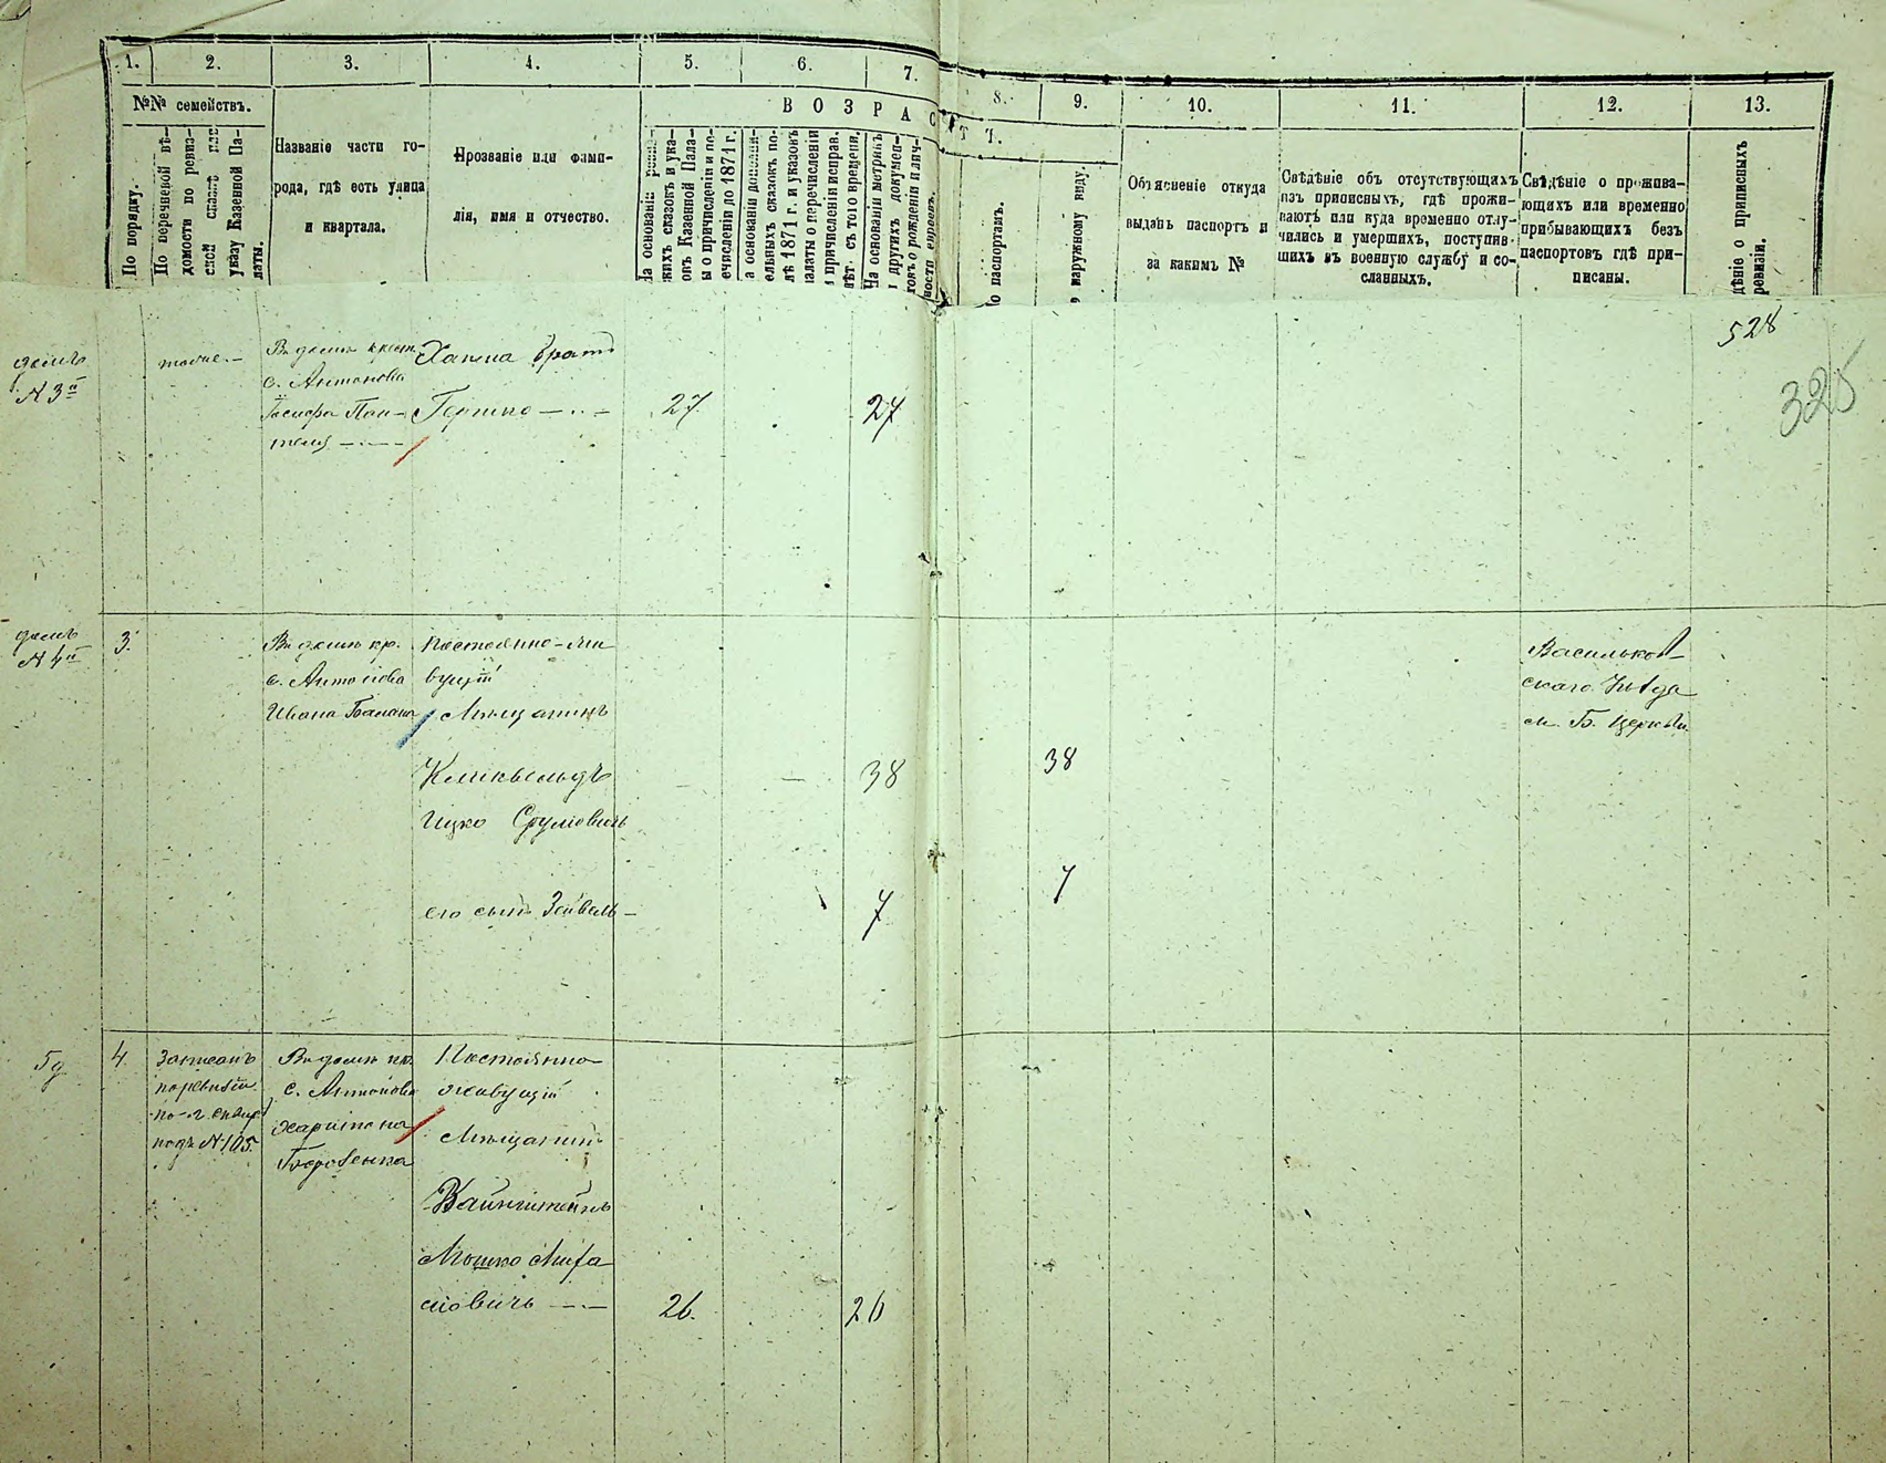 1. 2. 3. 4. 5. 6. 7. 8. 9. 10. 11. 12. 13.
№№ семействъ.
По порядку.
По перечневой вѣ-
домости по ревиз-
ской сказкѣ или
указу Казенной Па-
латы.
Названіе части го-
рода, гдѣ есть улица
и квартала.
Прозваніе или фами-
лія, имя и отчество.
ВОЗРАСТЪ.
На основаніи ревиз-
скихъ сказокъ и ука-
зовъ Казенной Пала-
ты о причисленіи и пе-
речисленіи до 1871 г.
На основаніи
ельныхъ сказокъ по-
лѣ 1871 г. и указовъ
палаты о перечисленіи
и причисленіи исправ.
лѣт. съ того времени.
На основаніи метрикъ
и другихъ докумен-
товъ о рожденіи и лич-
ности евреевъ.
По паспортамъ.
о наружному виду.
Объясненіе откуда
выданъ паспортъ и
за какимъ №
Свѣдѣніе объ отсутствующихъ
изъ приписныхъ, гдѣ прожи-
ваютъ или куда временно отлу-
чились и умершихъ, поступив-
шихъ въ военную службу и со-
сланныхъ.
Свѣдѣніе о прожива-
ющихъ или временно
прибывающихъ безъ
паспортовъ гдѣ при-
писаны.
дѣніе о приписныхъ
ревизіи.
528
325
домъ
№ 3й
Въ домѣ крест.
с. Антонова
Іосифа Пан-
телея
Хаима братъ
Гершко
27
27
домъ
№ 4й
3.
Въ домѣ кр.
с. Антонова
Ивана
Постоянно-жи
вущій
Мѣщанинъ
Ицко Сруліовичъ
38
38
его сынъ Зейвель
7
7
Васильков-
скаго Уѣзда
м. Б. Церкви
4
Записанъ
по ревизіи
по г.
подъ № 105.
Въ домѣ кр.
с. Антонова
Харитона
Постоянно
живущій
Мѣщанинъ
Вайнштейнъ
Мошко
26.
26